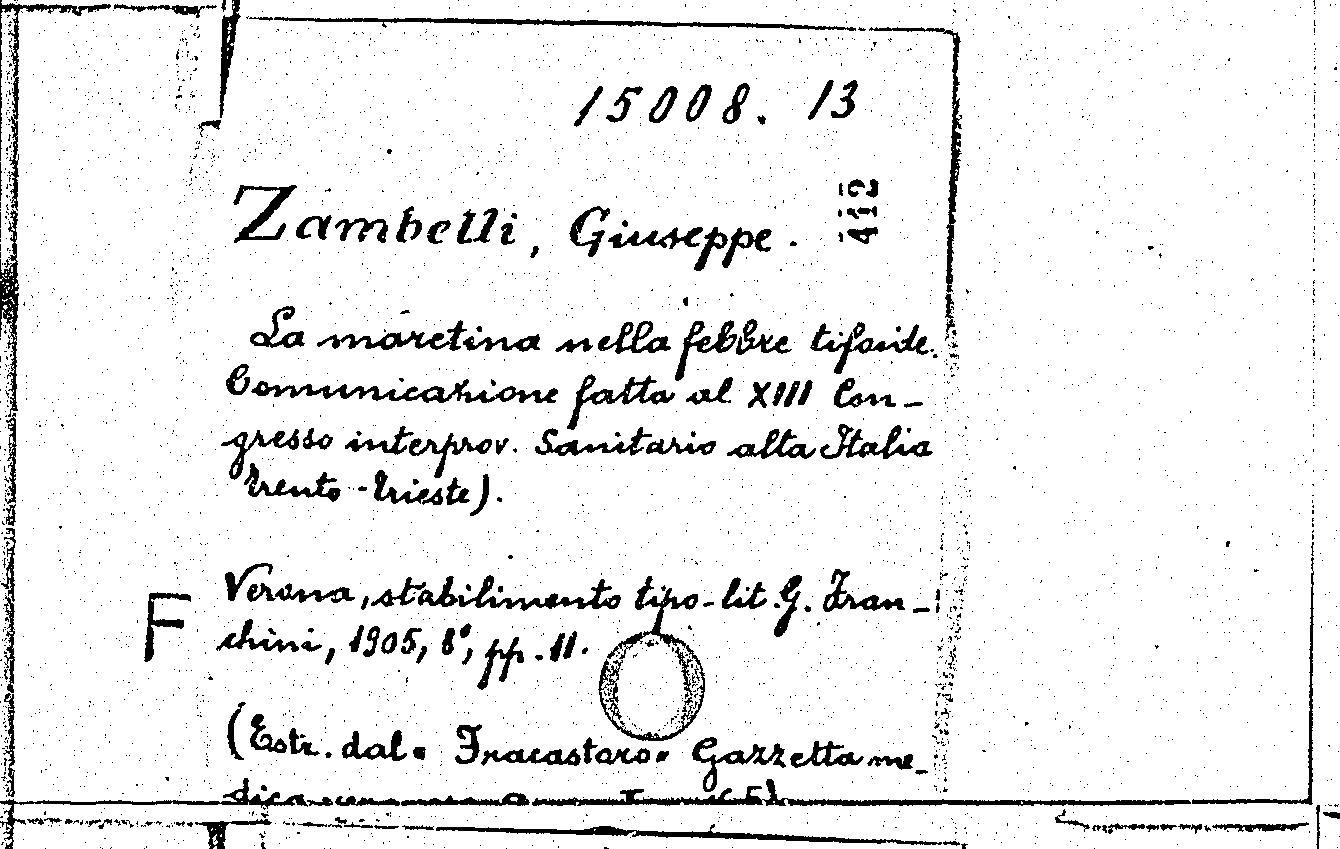 15008. 13
412
Zambelli, Giuseppe.
La maretina nella febbre tifoide.
Comunicazione fatta al XIII Con-
gresso interprov. Sanitario alta Italia
Trento - Trieste).
F
Verona, stabilimento tipo-lit. G. Fran-
chini, 1905, 8°, pp. 11.
(Estr. dal " Fracastoro " Gazzetta me-
dica